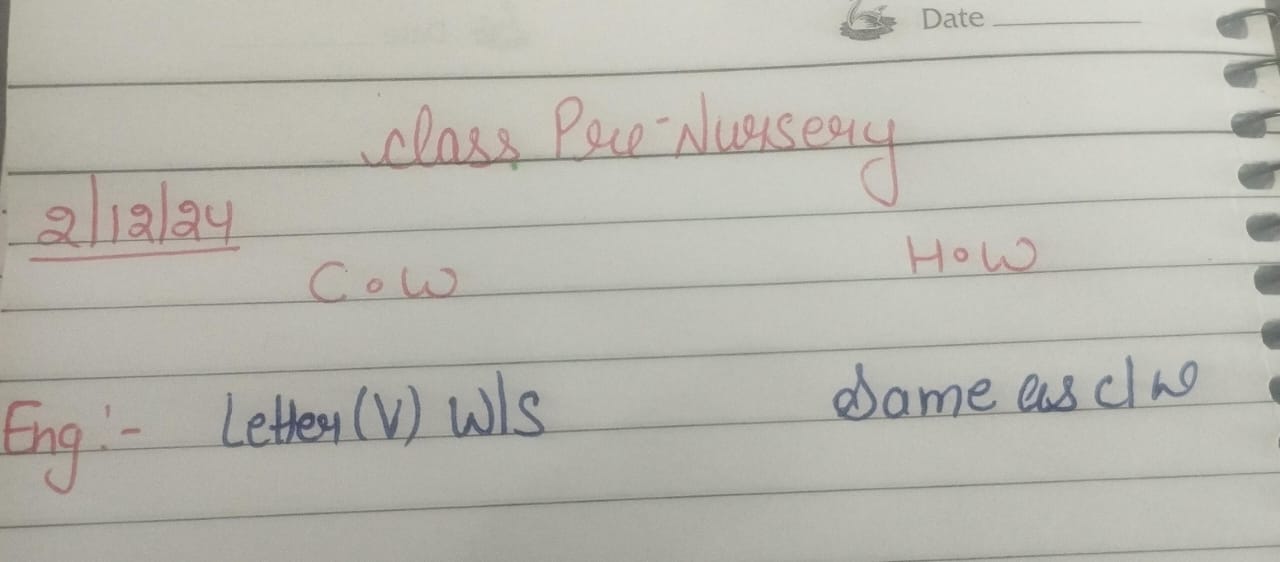 Date
Class Pre-Nursery
2/12/24
C.W H.W
Eng:- Letter (V) W/S Same as c/w